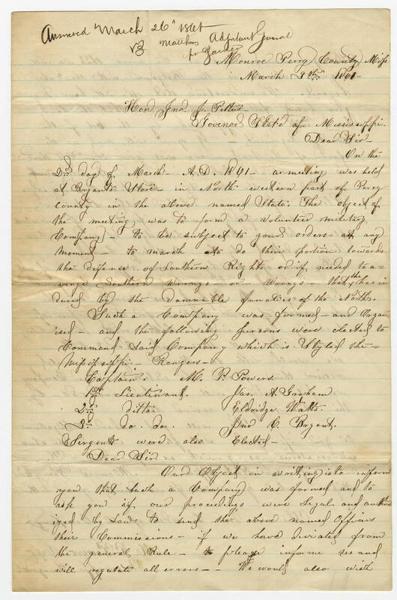 Answered March 26th 1861
Adjutant General
Monroe Perry County Miss
March 9th 1861
Hond Jno J. Pettus
Govenor State of Mississippi
Dear Sir
On the
2nd day of March A.D. 1861 a meeting was held
at Bryants Store in North western part of Perry
County in the above named State. The object of
the meeting was to form a volunteer military
Company to be subject to your orders at any
moment to march to do their portion towards
the defence of Southern Rights or if needed to a-
venge Southern wrongs or Wrongs that
by the Damnable fanatics of the North.
Such a Company was formed and Organ
ised and the following persons were elected to
Command Said Company which is Styled the
Mississippi Rangers
Captain M. P. Powers
1st Lieutenant. Jas. A.
2nd ditto Eldridge Watts
3rd do. do. Jno. C. Bryant.
Sergents were also Elected
Dear Sir
Our Object in writing is to inform
you that such a Company was formed and to
ask you if our proceedings were Legal and author
ized by Law, to send the above named Officers
their Commissions if we have diviated from
the general Rule to please informe us and
will regulate all errors We would also wish